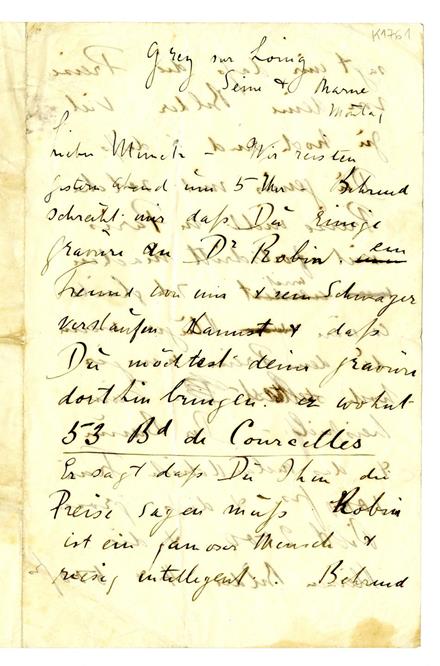 K1761
Grez sur Loing
Seine & Marne
Montag
Lieber Munch – Wir reisten
gestern abend um 5 Uhr Behrend
schreibt mir daß Du einige
gravüre an Dr Robin. ein
Freund von uns & sein Schwager
verkaufen kannst & daß
Du möchtest deine gravüre
dorthin bringen. er wohnt
53 Bd de Courcelles
Er sagt daß Du Ihm die
Preise sagen muß. Robin
ist ein famoser Mensch &
riesig intelligent. Behrend